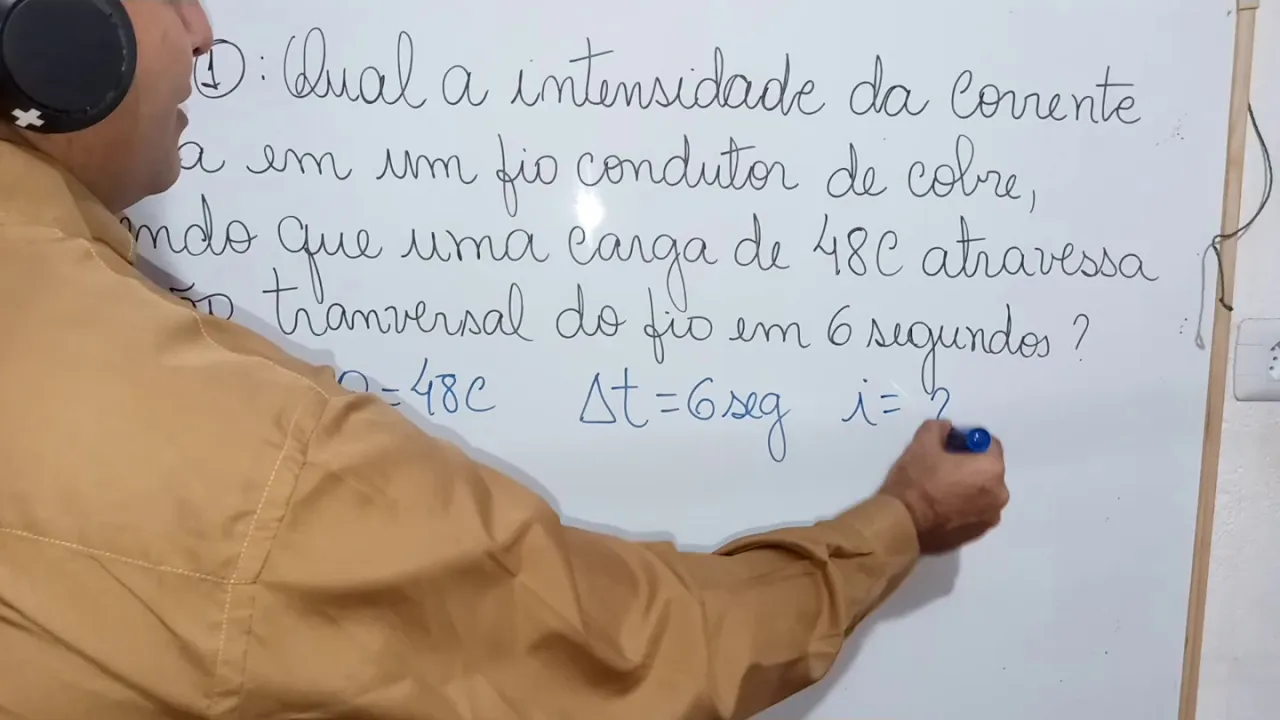 ①: Qual a intensidade da corrente
em um fio condutor de cobre,
que uma carga de 48C atravessa
tranversal do fio em 6 segundos?
=48C Δt=6seg i=?